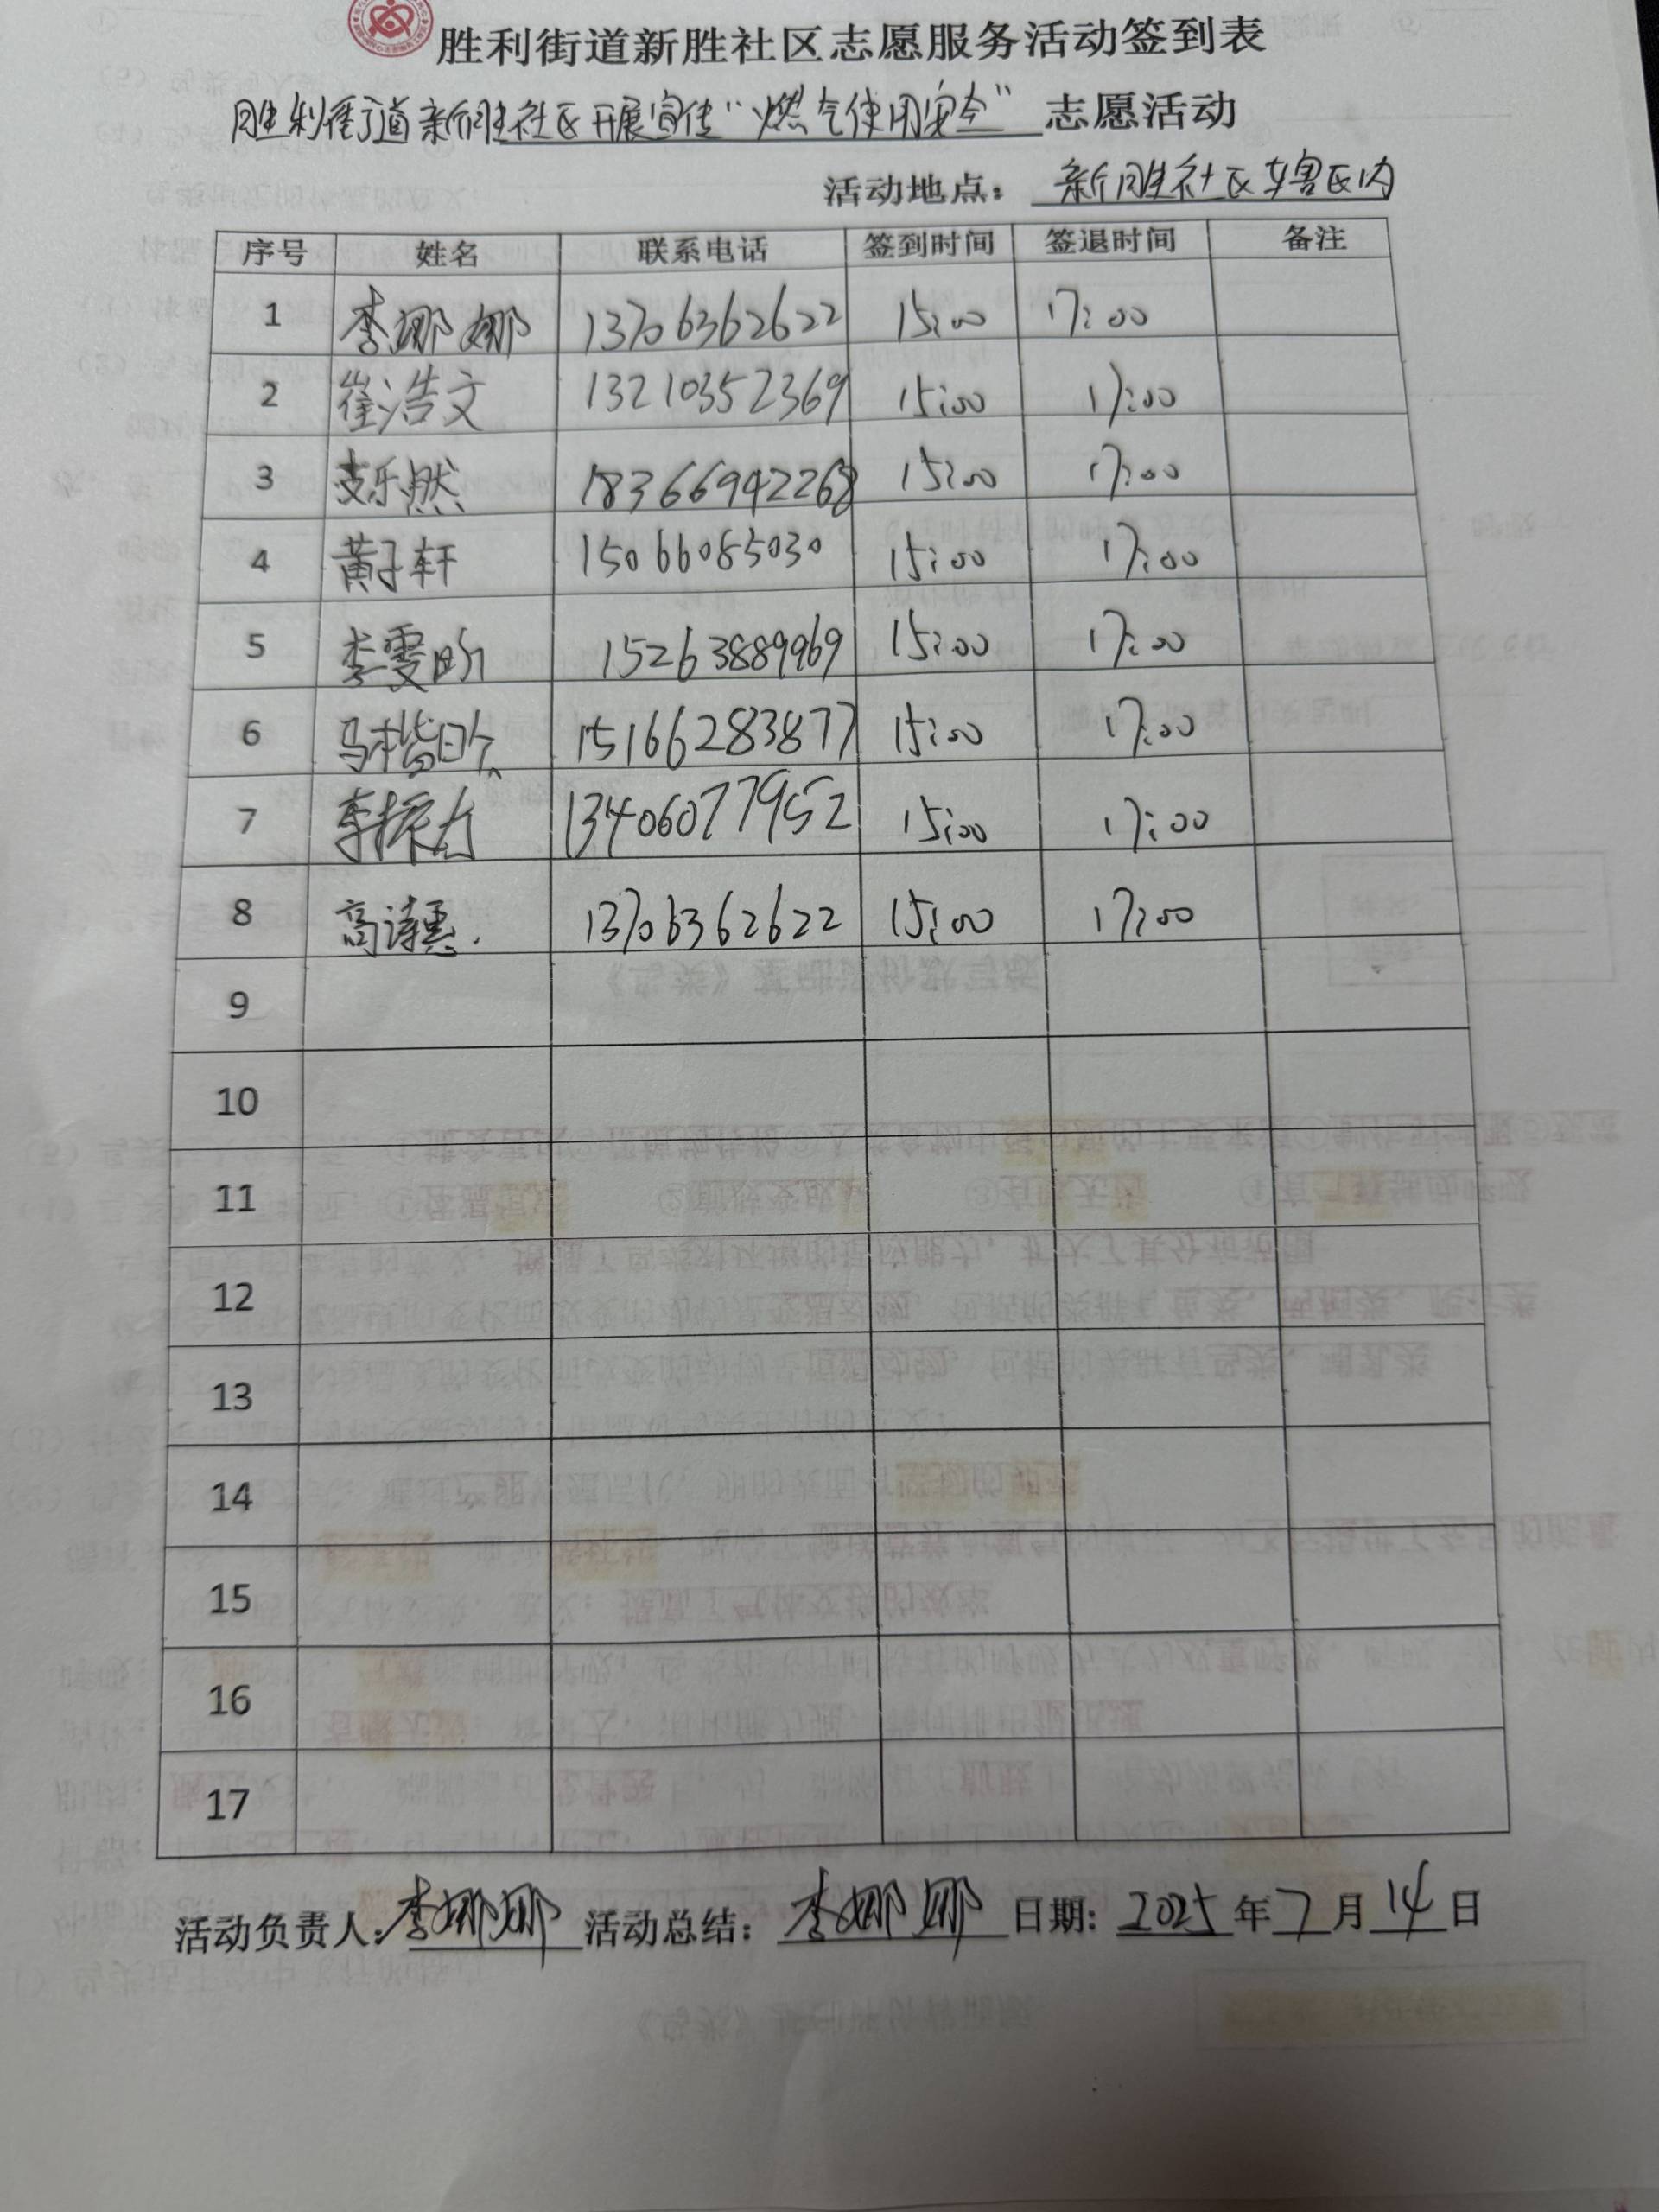 胜利街道新胜社区志愿服务活动签到表
胜利街道新胜社区开展宣传“燃气使用安全”志愿活动
活动地点：新胜社区辖区内
序号 姓名 联系电话 签到时间 签退时间 备注
1 李娜娜 13706362622 15:00 17:00
2 崔浩文 13210352369 15:00 17:00
3 支乐然 18366942268 15:00 17:00
4 黄子轩 15066085030 15:00 17:00
5 李雯昕 15263889969 15:00 17:00
6 马楷 15166283877 15:00 17:00
7 李振 13406077952 15:00 17:00
8 高诗惠 13706362622 15:00 17:00
9
10
11
12
13
14
15
16
17
活动负责人：李娜娜 活动总结：李娜娜 日期：2025年7月14日